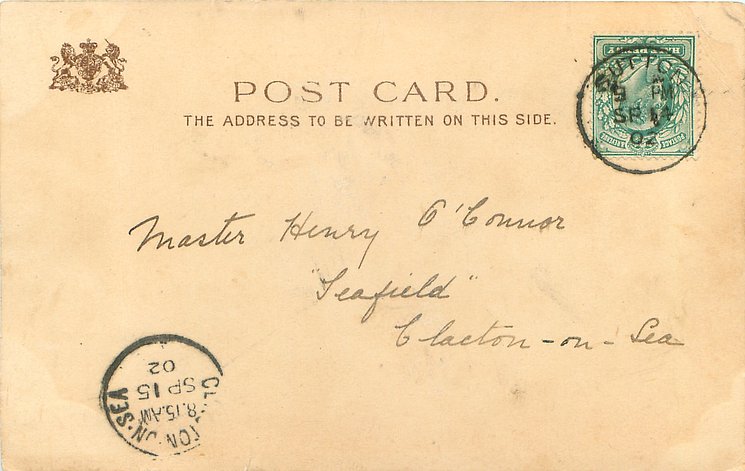 POST CARD.
THE ADDRESS TO BE WRITTEN ON THIS SIDE.
SUTTON
9 PM
SP 14
02
Master Henry O'Connor
"Seafield"
Clacton-on-Sea
CLACTON-ON-SEA
8.15.AM
SP 15
02